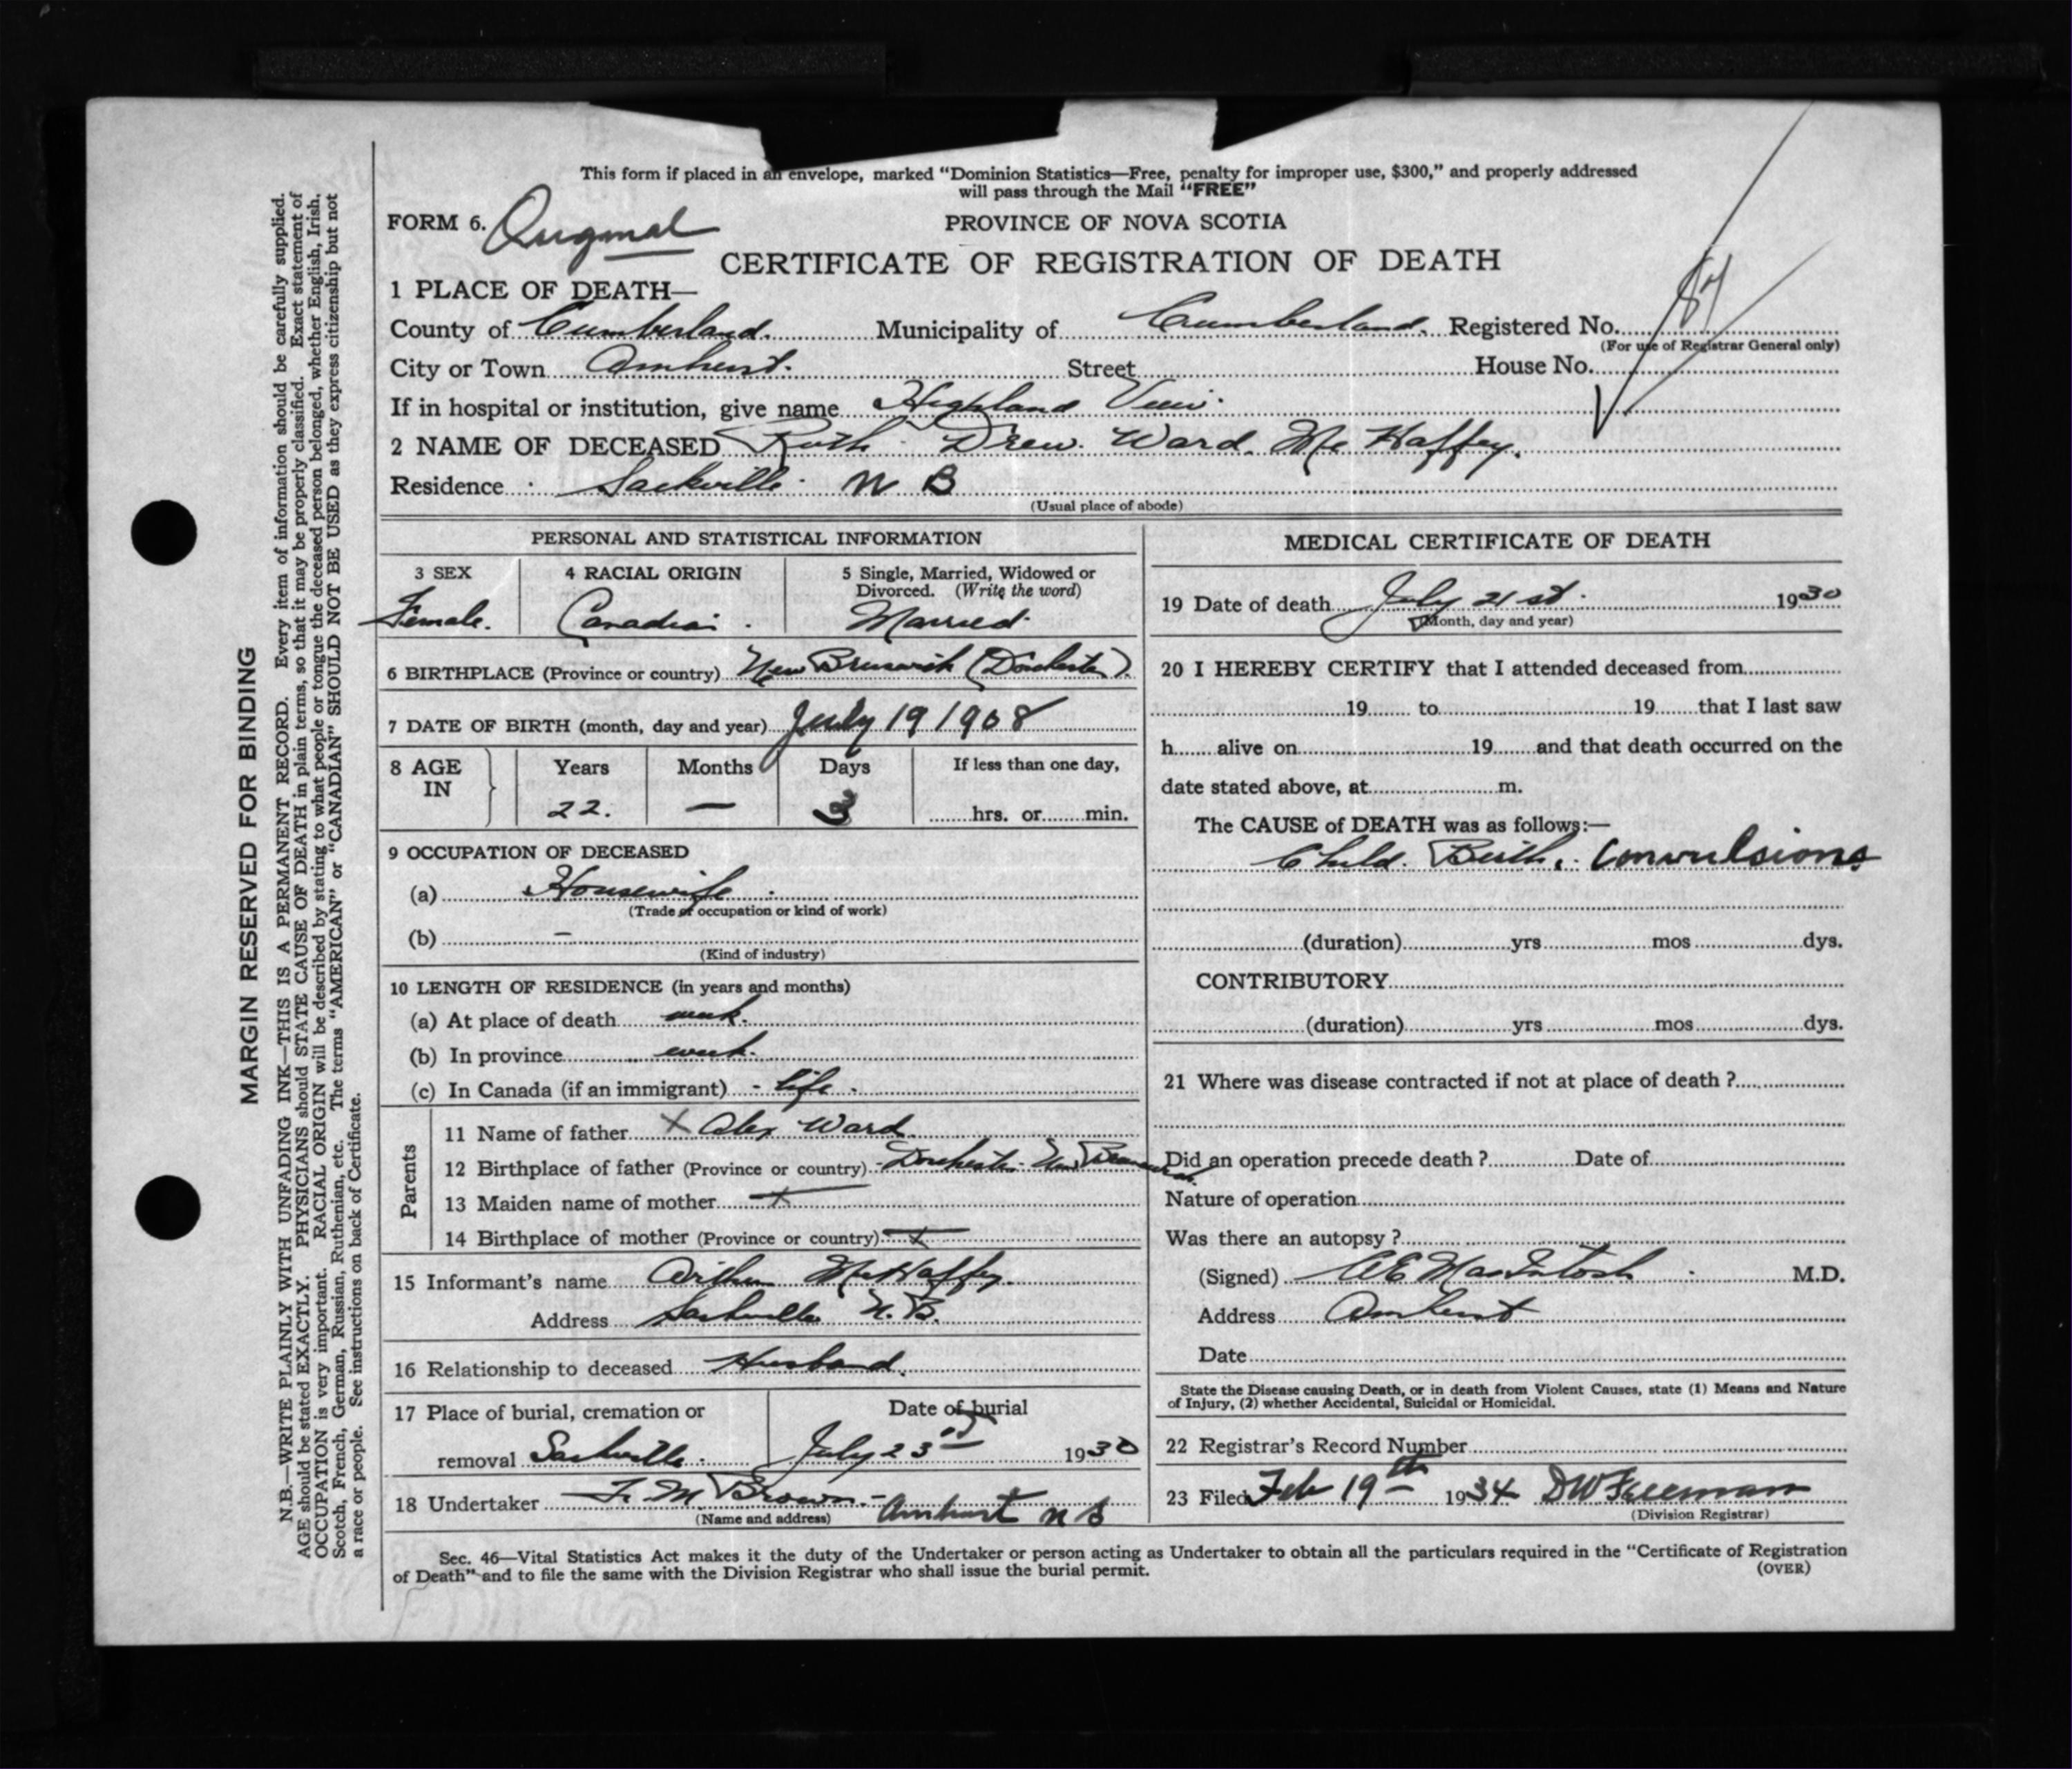 This form if placed in an envelope, marked "Dominion Statistics—Free, penalty for improper use, $300," and properly addressed
will pass through the Mail "FREE"
FORM 6. Original PROVINCE OF NOVA SCOTIA
CERTIFICATE OF REGISTRATION OF DEATH
1 PLACE OF DEATH—
County of Cumberland. Municipality of Cumberland. Registered No. 87
(For use of Registrar General only)
City or Town Amherst. Street House No.
If in hospital or institution, give name Highland View.
2 NAME OF DECEASED Ruth Drew Ward McHaffey.
Residence Sackville N B
(Usual place of abode)
PERSONAL AND STATISTICAL INFORMATION
3 SEX 4 RACIAL ORIGIN 5 Single, Married, Widowed or
Divorced. (Write the word)
Female. Canadian. Married.
6 BIRTHPLACE (Province or country) New Brunswick (Dorchester).
7 DATE OF BIRTH (month, day and year) July 19 1908
8 AGE IN Years Months Days If less than one day,
22. — 3 hrs. or min.
9 OCCUPATION OF DECEASED
(a) Housewife.
(Trade or occupation or kind of work)
(b) –
(Kind of industry)
10 LENGTH OF RESIDENCE (in years and months)
(a) At place of death week.
(b) In province week.
(c) In Canada (if an immigrant) - life -
Parents
11 Name of father X Alex Ward
12 Birthplace of father (Province or country) Dorchester New Brunswick
13 Maiden name of mother X
14 Birthplace of mother (Province or country) X
15 Informant's name Arthur McHaffey.
Address Sackville N.B.
16 Relationship to deceased Husband.
17 Place of burial, cremation or Date of burial
removal Sackville. July 23rd 1930
18 Undertaker F. M. Brown - Amherst N S
(Name and address)
MEDICAL CERTIFICATE OF DEATH
19 Date of death July 21st. 1930
(Month, day and year)
20 I HEREBY CERTIFY that I attended deceased from
19 to 19 that I last saw
h alive on 19 and that death occurred on the
date stated above, at m.
The CAUSE of DEATH was as follows:—
Child Birth. Convulsions
(duration) yrs mos dys.
CONTRIBUTORY
(duration) yrs mos dys.
21 Where was disease contracted if not at place of death ?
Did an operation precede death ? Date of
Nature of operation
Was there an autopsy ?
(Signed) A E MacIntosh M.D.
Address Amherst
Date
State the Disease causing Death, or in death from Violent Causes, state (1) Means and Nature
of Injury, (2) whether Accidental, Suicidal or Homicidal.
22 Registrar's Record Number
23 Filed Feb 19th 1934 D W Freeman
(Division Registrar)
Sec. 46—Vital Statistics Act makes it the duty of the Undertaker or person acting as Undertaker to obtain all the particulars required in the "Certificate of Registration
of Death" and to file the same with the Division Registrar who shall issue the burial permit.
(OVER)
MARGIN RESERVED FOR BINDING
N.B.—WRITE PLAINLY WITH UNFADING INK—THIS IS A PERMANENT RECORD. Every item of information should be carefully supplied.
AGE should be stated EXACTLY. PHYSICIANS should STATE CAUSE OF DEATH in plain terms, so that it may be properly classified. Exact statement of
OCCUPATION is very important. RACIAL ORIGIN will be described by stating to what people or tongue the deceased person belonged, whether English, Irish,
Scotch, French, German, Russian, Ruthenian, etc. The terms "AMERICAN" or "CANADIAN" SHOULD NOT BE USED as they express citizenship but not
a race or people. See instructions on back of Certificate.